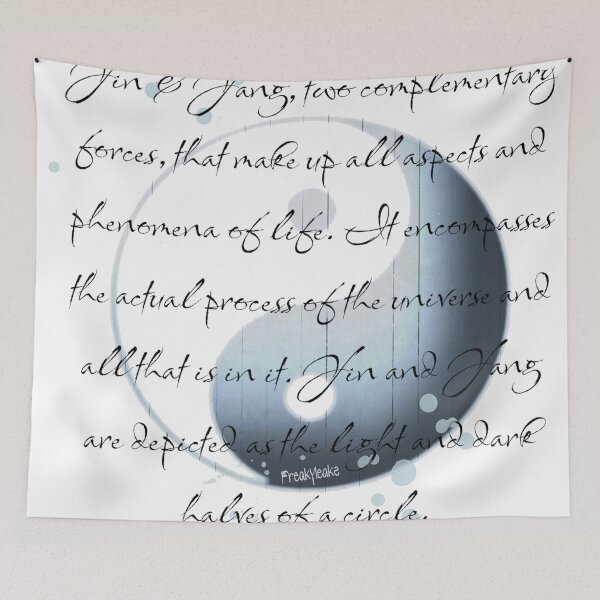 Yin & Yang, two complementary
forces, that make up all aspects and
phenomena of life. It encompasses
the actual process of the universe and
all that is in it. Yin and Yang
are depicted as the light and dark
Freakyleake
halves of a circle.